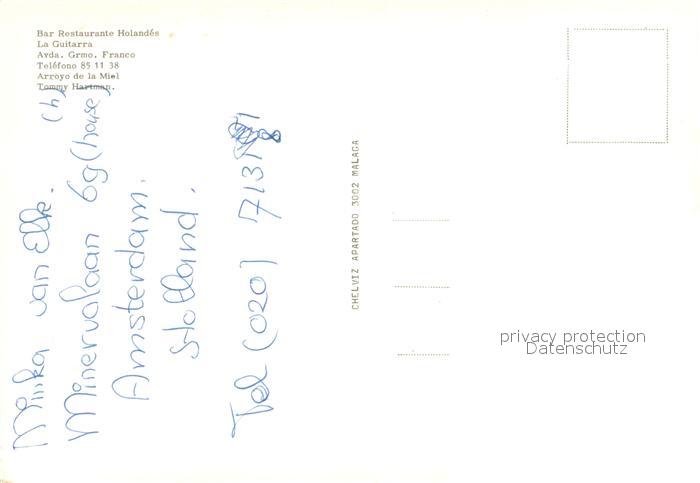 Bar Restaurante Holandés
La Guitarra
Avda. Grmo. Franco
Teléfono 85 11 38
Arroyo de la Miel
Tommy Hartman.
Minka van Elk. (h)
Minervalaan 69 (house)
Amsterdam.
Holland.
Tel (020) 7131
CHELVIZ APARTADO 3002 MALAGA
privacy protection
Datenschutz